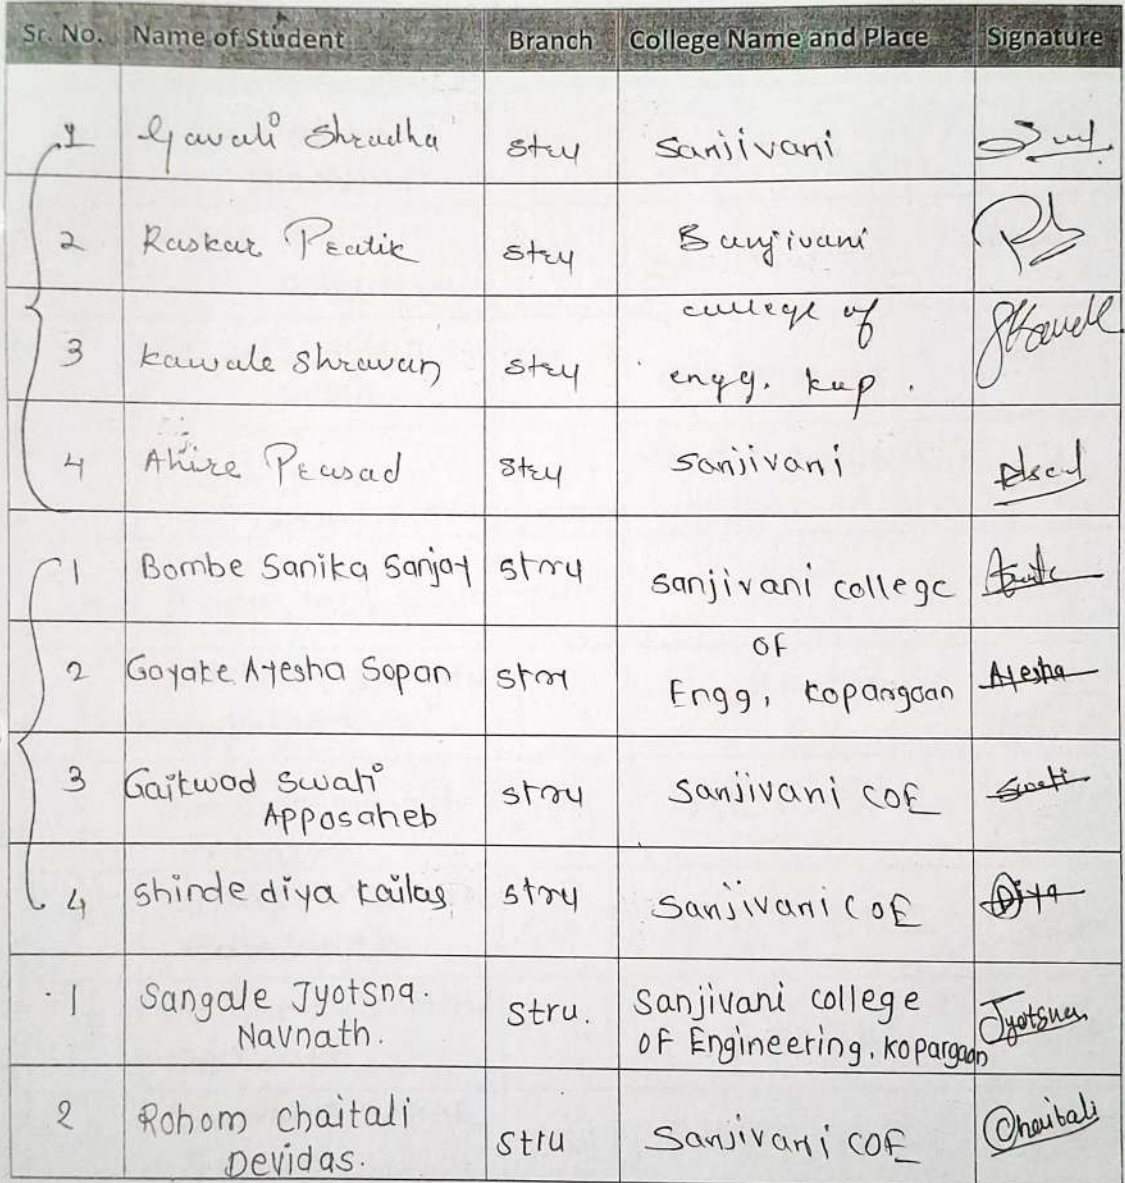 Sr. No. Name of Student Branch College Name and Place Signature
1 Gavali Shradha stru Sanjivani
2 Raskar Pratik stru Sanjivani
3 kawale shravan stru college of
engg. kop.
4 Ahire Prasad stru Sanjivani
1 Bombe Sanika Sanjay stru sanjivani college
2 Gayake Ayesha Sopan stru OF Ayesha
Engg, kopargaan
3 Gaikwad Swati stru Sanjivani COE Swati
Appasaheb
4 shinde diya kailas stru Sanjivani COE Diya
1 Sangale Jyotsna. Stru. Sanjivani college Jyotsna
Navnath. OF Engineering, kopargaan
2 Rohom chaitali stru Sanjivani COE Chaitali
Devidas.